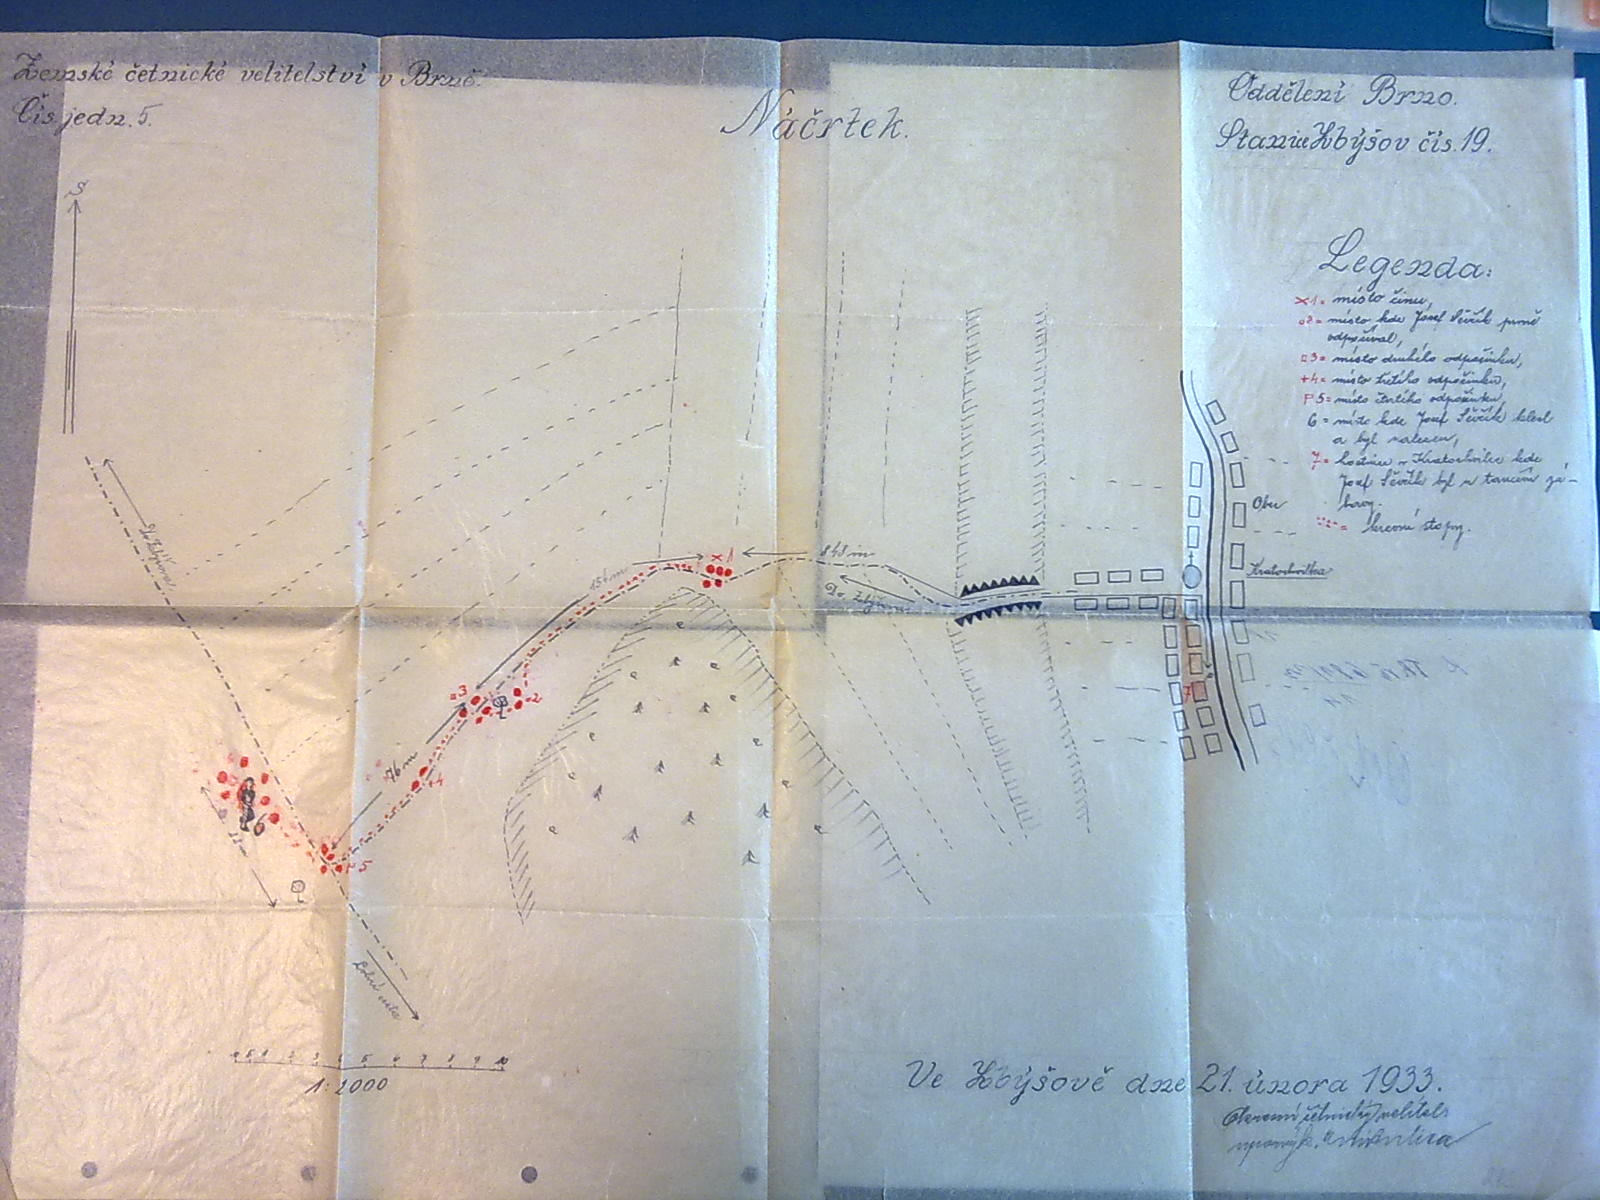 Zemské četnické velitelství v Brně.
Čís. jedn. 5.
Náčrtek.
Oddělení Brno.
Stanice Zbýšov čís. 19.
S
Legenda:
×1 = místo činu,
o2 = místo kde Josef Ševčík prvně
odpočíval,
□3 = místo druhého odpočinku,
+4 = místo třetího odpočinku,
P5 = místo čtvrtého odpočinku,
6 = místo kde Josef Ševčík klesl
a byl nalezen,
7 = hostinec v Kratochvilce kde
Josef Ševčík byl v taneční zá-
bavě.
= krevní stopy.
Obec
Kratochvilka
× 1
848 m
Do Zbýšova
154 m
□3
o2
76 m
+4
P 5
6
7
Polní cesta
1 2 3 4 5 6 7 8 9 10
1:2000
Ve Zbýšově dne 21. února 1933.
četnický velitel: